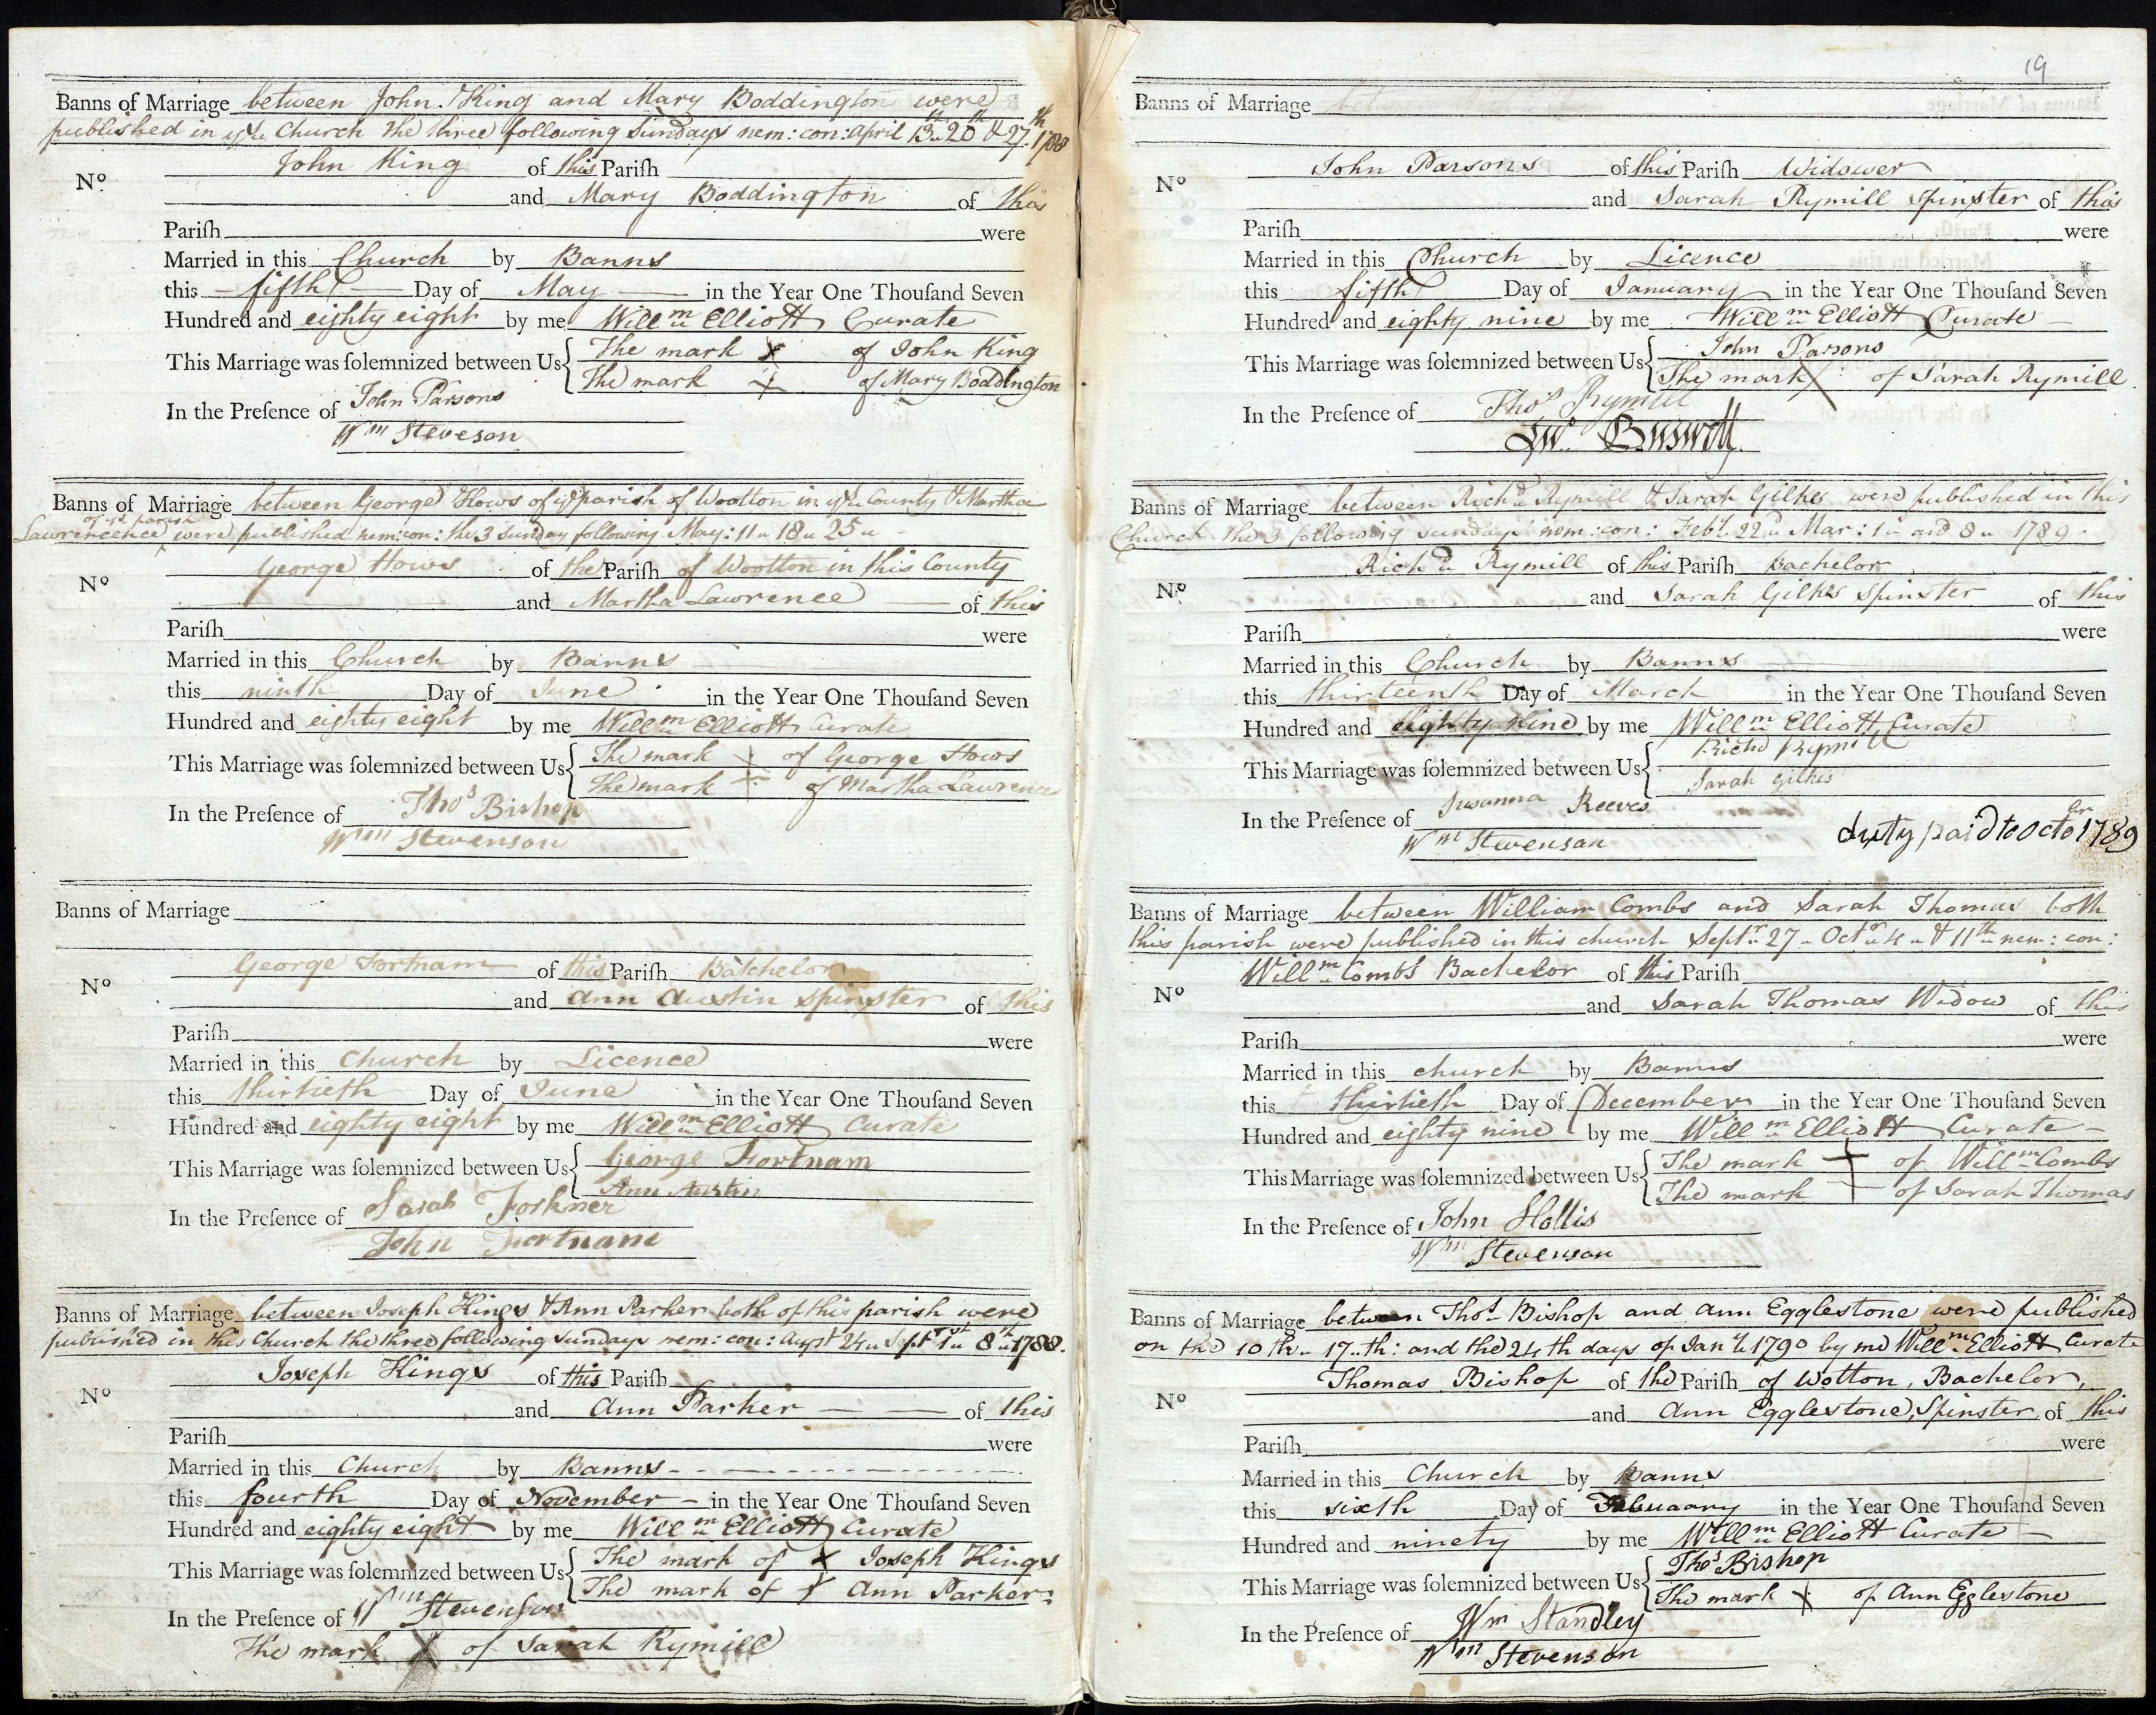 Banns of Marriage between John King and Mary Boddington were
published in ys Church the three following Sundays nem: con: April 13th 20th & 27th 1788
No John King of this Pariſh
and Mary Boddington of this
Pariſh were
Married in this Church by Banns
this fifth Day of May in the Year One Thouſand Seven
Hundred and eighty eight by me Willm Elliott Curate
This Marriage was ſolemnized between Us { The mark X of John King
The mark X of Mary Boddington
In the Preſence of John Parsons
Wm Steveson
Banns of Marriage between George Hows of ye parish of Wootton in ys County & Martha
of ys parish
Lawrencence were published nem: con: the 3 Sunday following May: 11 18 25
No George Hows of the Pariſh of Wootton in this County
and Martha Lawrence of this
Pariſh were
Married in this Church by Banns
this ninth Day of June in the Year One Thouſand Seven
Hundred and eighty eight by me Willm Elliott Curate
This Marriage was ſolemnized between Us { The mark + of George Hows
The mark + of Martha Lawrence
In the Preſence of Thos Bishop
Wm Stevenson
Banns of Marriage
No George Fortnam of this Pariſh Batchelor
and Ann Austin Spinster of this
Pariſh were
Married in this Church by Licence
this thirtieth Day of June in the Year One Thouſand Seven
Hundred and eighty eight by me Willm Elliott Curate
This Marriage was ſolemnized between Us { George Fortnam
Ann Austin
In the Preſence of Sarah Forkner
John Fortnam
Banns of Marriage between Joseph Kings & Ann Parker both of this parish were
published in this Church the three following Sundays nem: con: Augst 24 Sept 1st 8th 1788.
No Joseph Kings of this Pariſh
and Ann Parker of this
Pariſh were
Married in this Church by Banns
this fourth Day of November in the Year One Thouſand Seven
Hundred and eighty eight by me Willm Elliott Curate
This Marriage was ſolemnized between Us { The mark of X Joseph Kings
The mark of X Ann Parker
In the Preſence of Wm Stevenson
The mark X of Sarah Rymill
19
Banns of Marriage
No John Parsons of this Pariſh Widower
and Sarah Rymill Spinster of this
Pariſh were
Married in this Church by Licence
this fifth Day of January in the Year One Thouſand Seven
Hundred and eighty nine by me Willm Elliott Curate
This Marriage was ſolemnized between Us { John Parsons
The mark X of Sarah Rymill
In the Preſence of Thos Rymill
Buswell
Banns of Marriage between Richd Rymill & Sarah Gilkes were published in this
Church the 3 following Sundays nem: con: Feby. 22 Mar: 1 and 8 1789
No Richd Rymill of this Pariſh Bachelor
and Sarah Gilkes Spinster of this
Pariſh were
Married in this Church by Banns
this thirteenth Day of March in the Year One Thouſand Seven
Hundred and eighty Nine by me Willm Elliott Curate
This Marriage was ſolemnized between Us { Richd Rymill
Sarah Gilkes
In the Preſence of Susanna Reeves
Wm Stevenson
duty paid to Octobr 1789
Banns of Marriage between William Combs and Sarah Thomas both
this parish were published in this church Septr 27 Octr 4 & 11th nem: con:
No Willm Combs Bachelor of this Pariſh
and Sarah Thomas Widow of this
Pariſh were
Married in this church by Banns
this thirtieth Day of December in the Year One Thouſand Seven
Hundred and eighty nine by me Willm Elliott Curate
This Marriage was ſolemnized between Us { The mark + of Willm Combs
The mark + of Sarah Thomas
In the Preſence of John Hollis
Wm Stevenson
Banns of Marriage between Thos Bishop and Ann Egglestone were published
on the 10th 17th: and the 24th days of Jany 1790 by me Willm Elliott Curate
No Thomas Bishop of the Pariſh of Wotton, Bachelor,
and Ann Egglestone, Spinster, of this
Pariſh were
Married in this Church by Banns
this sixth Day of Febuaary in the Year One Thouſand Seven
Hundred and ninety by me Willm Elliott Curate
This Marriage was ſolemnized between Us { Thos Bishop
The mark X of Ann Egglestone
In the Preſence of Wm Standley
Wm Stevenson